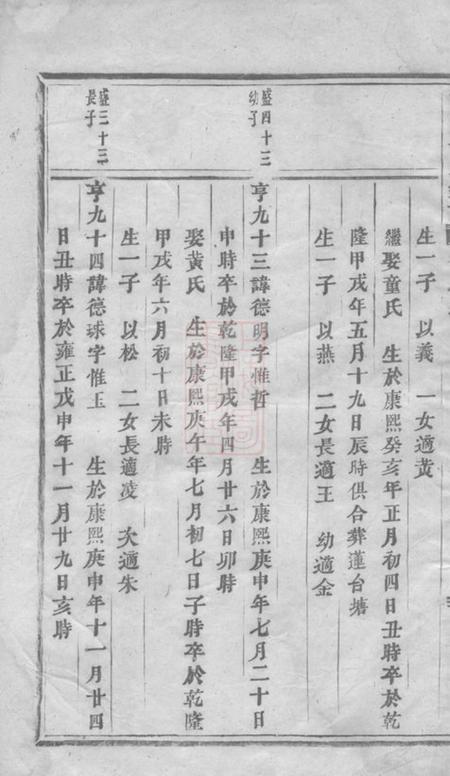 生一子　以義　一女適黃
繼娶童氏　生於康熙癸亥年正月初四日丑時卒於乾
隆甲戌年五月十九日辰時俱合葬蓮台塘
生一子　以燕　二女長適王　幼適金
盛四十三
幼子
亨九十三諱德明字惟哲　生於康熙庚申年七月二十日
申時卒於乾隆甲戌年四月廿六日卯時
娶黃氏　生於康熙庚午年七月初七日子時卒於乾隆
甲戌年六月初十日未時
生一子　以松　二女長適凌　次適朱
盛三十三
長子
亨九十四諱德球字惟玉　生於康熙庚申年十一月廿四
日丑時卒於雍正戊申年十一月廿九日亥時